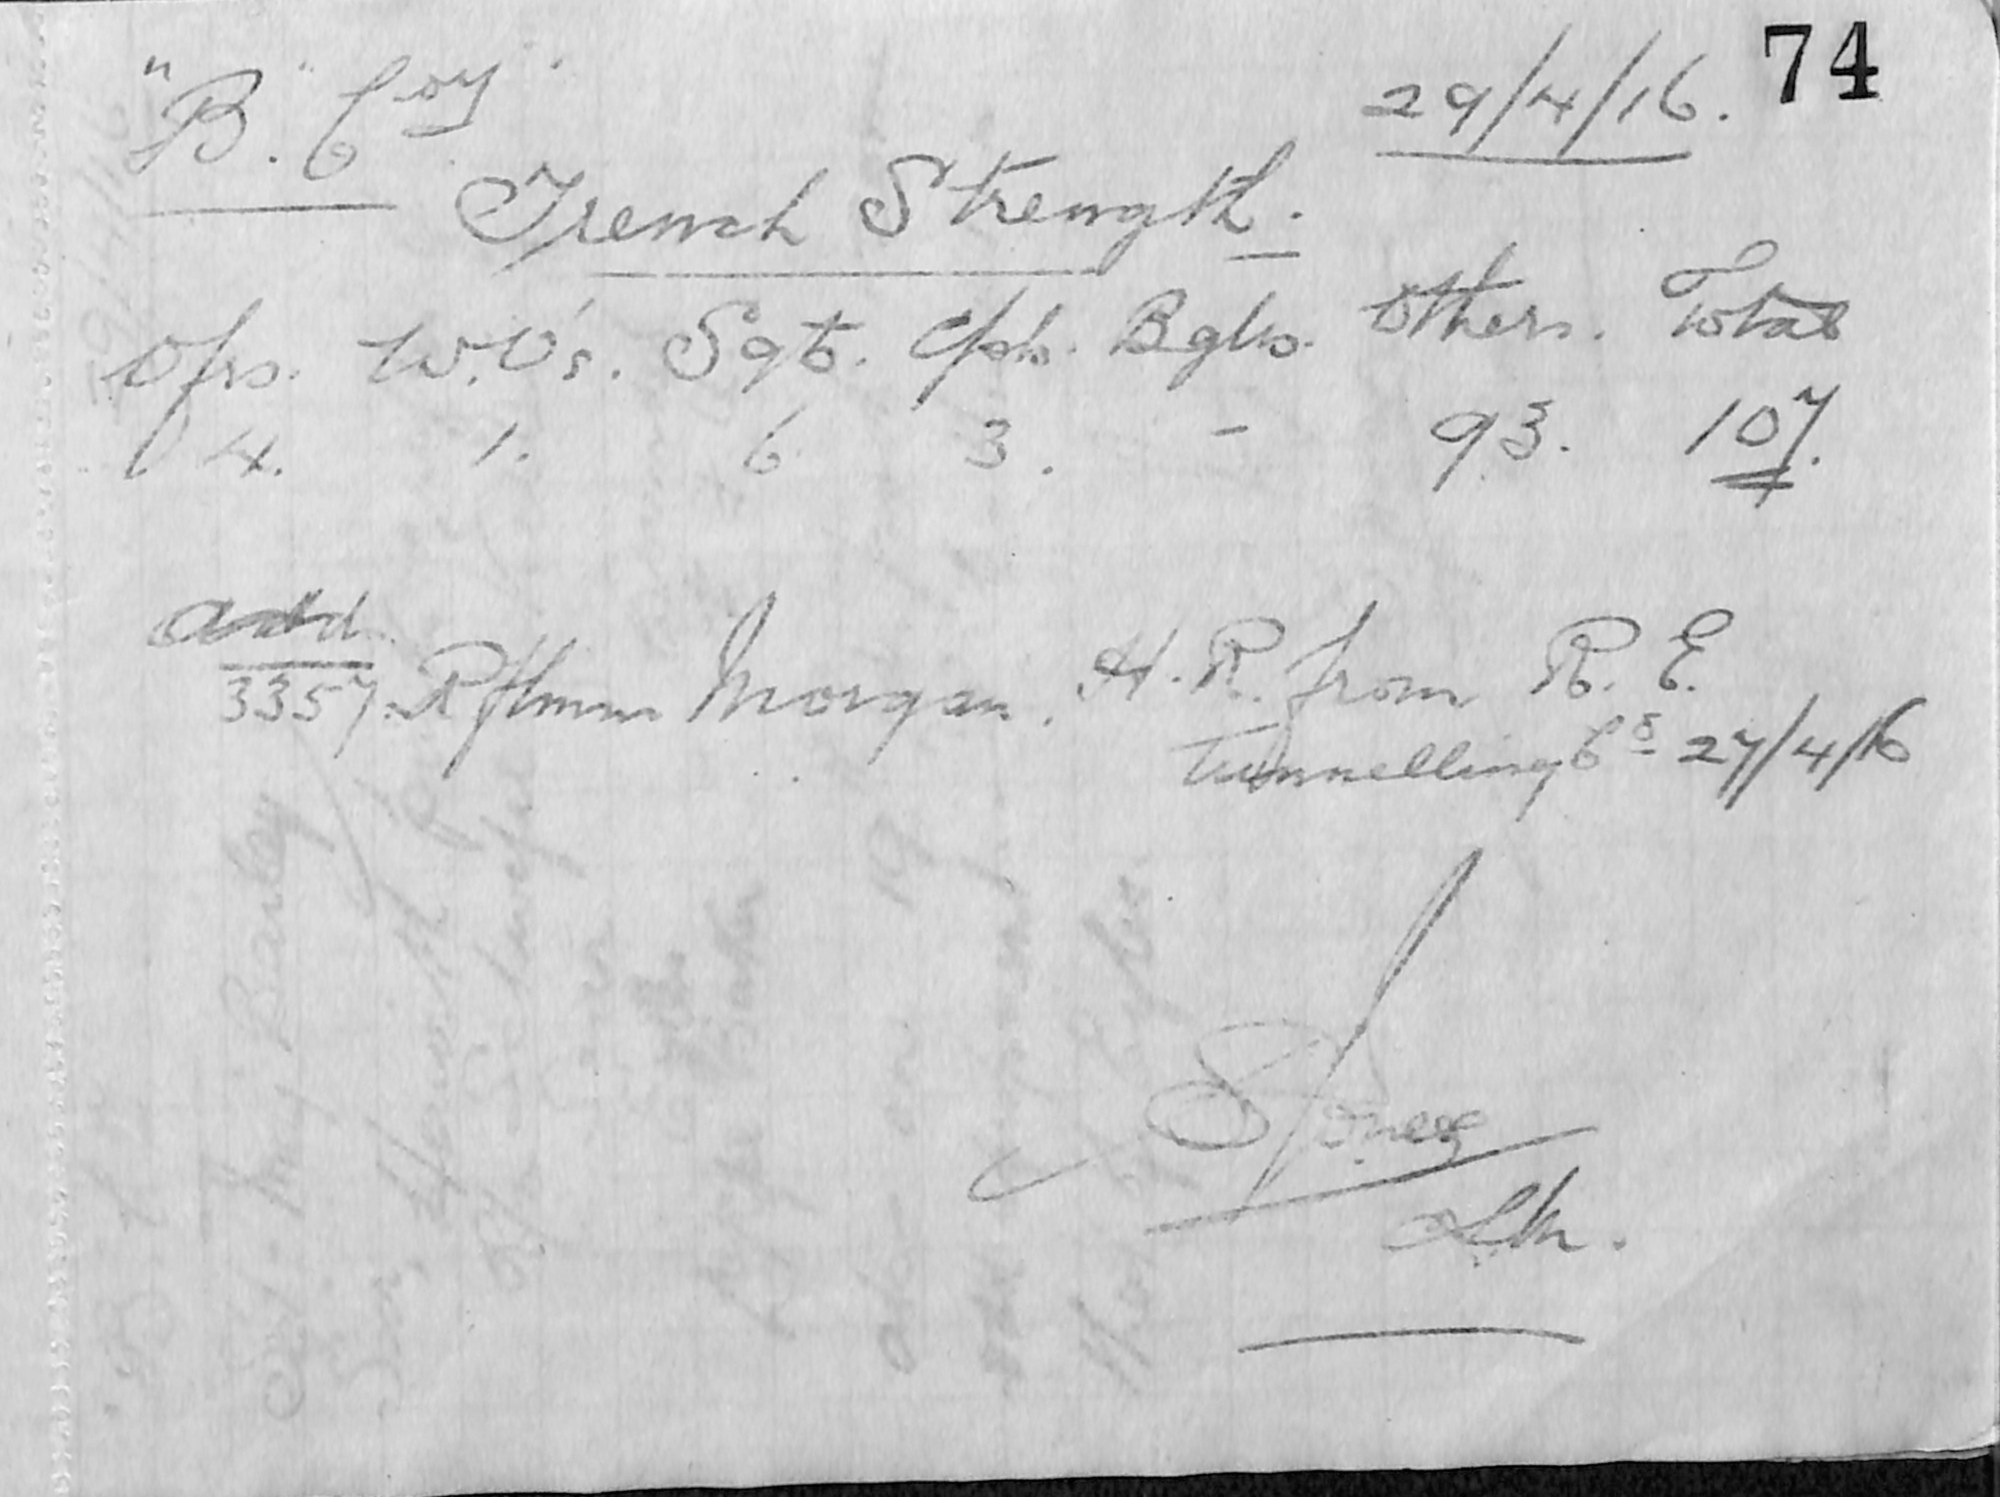 74
"B". Coy. 29/4/16.
Trench Strength.
Ofrs. W.O's. Sgts. Cpls. Bglrs. Others. Total
4. 1. 6 3. - 93. 107.
Add
3357. Rflmn Morgan. H. R. from R. E.
Tunnelling Co 27/4/16
Jones